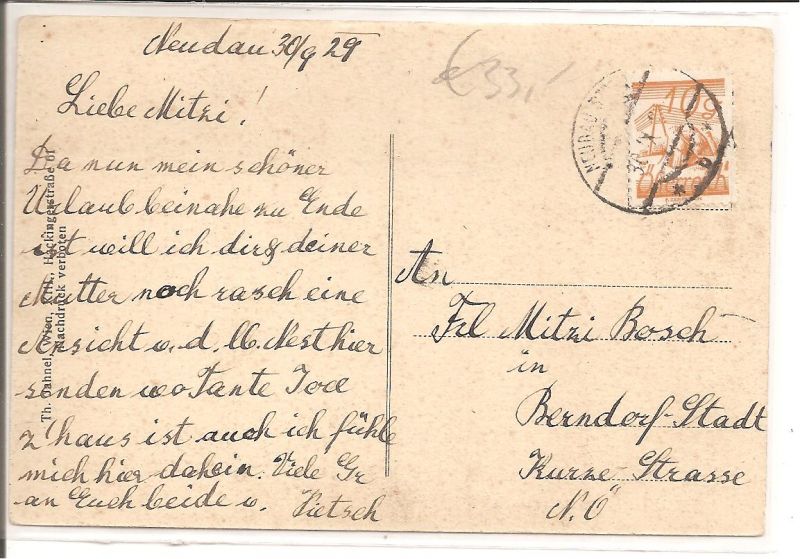 Neudau 30/9 29
€33,-
Liebe Mitzi!
Da nun mein schöner
Urlaub beinahe zu Ende
ist will ich dir & deiner
Mutter noch rasch eine
Ansicht v. d. Nest hier
senden wo Tante
z'haus ist auch ich fühle
mich hier daheim. Viele Gr
an Euch beide v. Pietsch
Th. Hahnel, Wien, XIII., Hackingerstraße 61
Nachdruck verboten
NEUDAU
10g
An
Frl Mitzi Bosch
in
Berndorf-Stadt
Kurze-Strasse
N.Ö